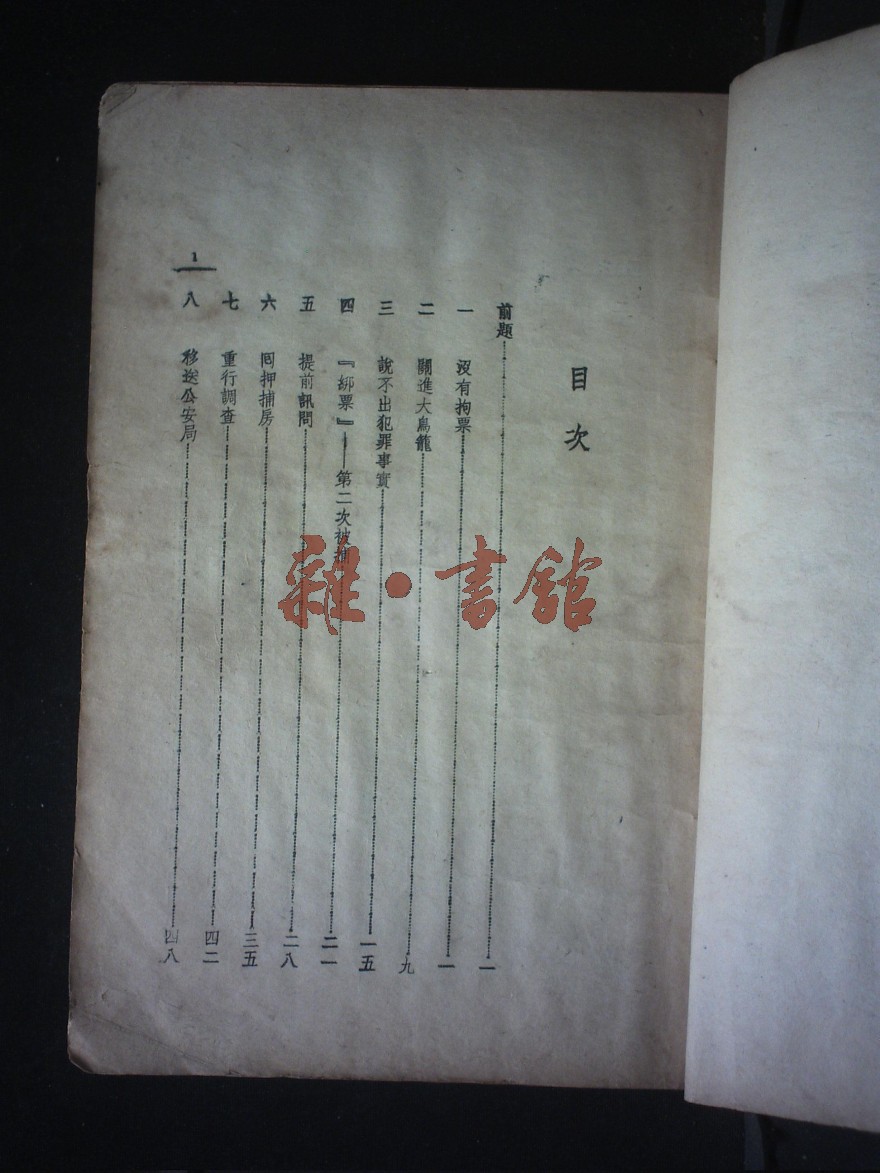 目次
前題一
一 沒有拘票一
二 關進大鳥籠九
三 說不出犯罪事實一五
四 『綁票』——第二次被捕二一
五 提前訊問二八
六 回押捕房三五
七 重行調查四二
八 移送公安局四八
1
雜·書館